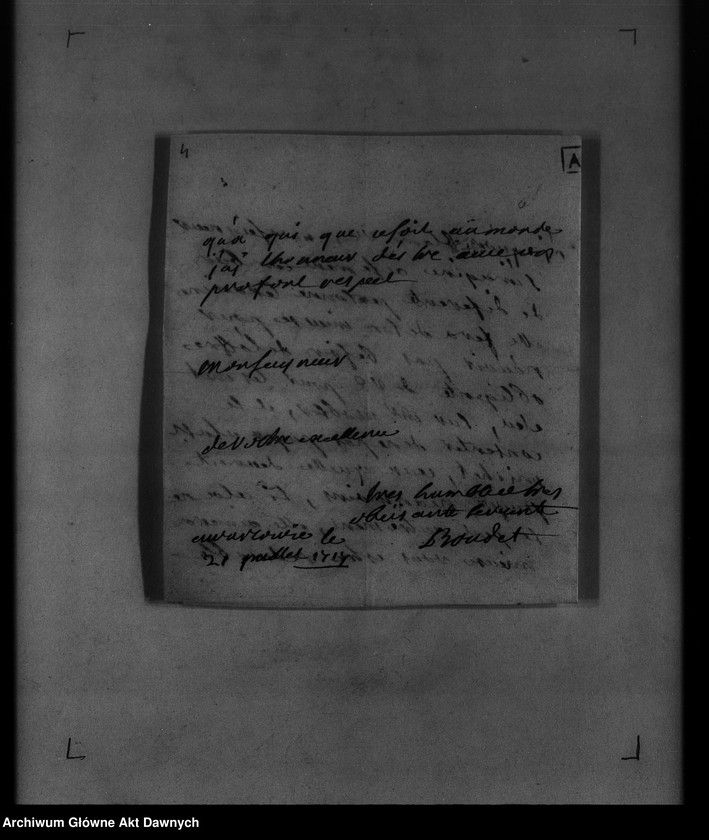 4
A
qu'a qui que cesoit aumonde
j'ai lhonneur déstre avec
profont respect
Monseigneur
de votre excellence
tres humble et tres
obeisante servante
Boudet
avarsovie le
21 juillet 1717
Archiwum Główne Akt Dawnych